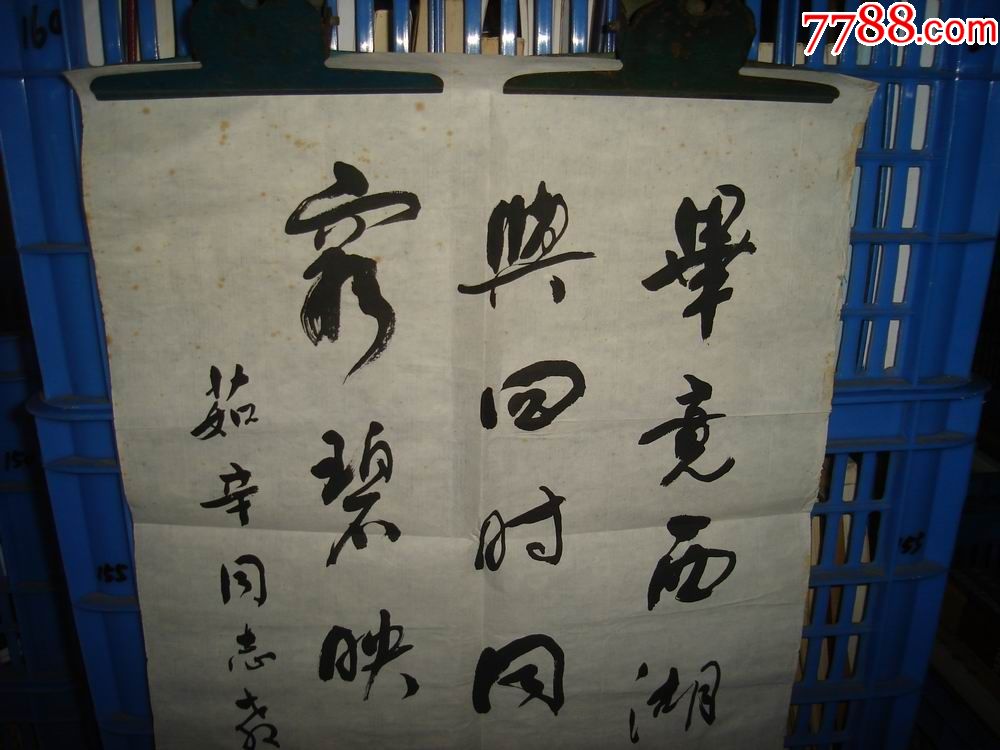 7788.com
畢竟西湖
與四时同
窮碧映
茹辛同志教
160
155
155